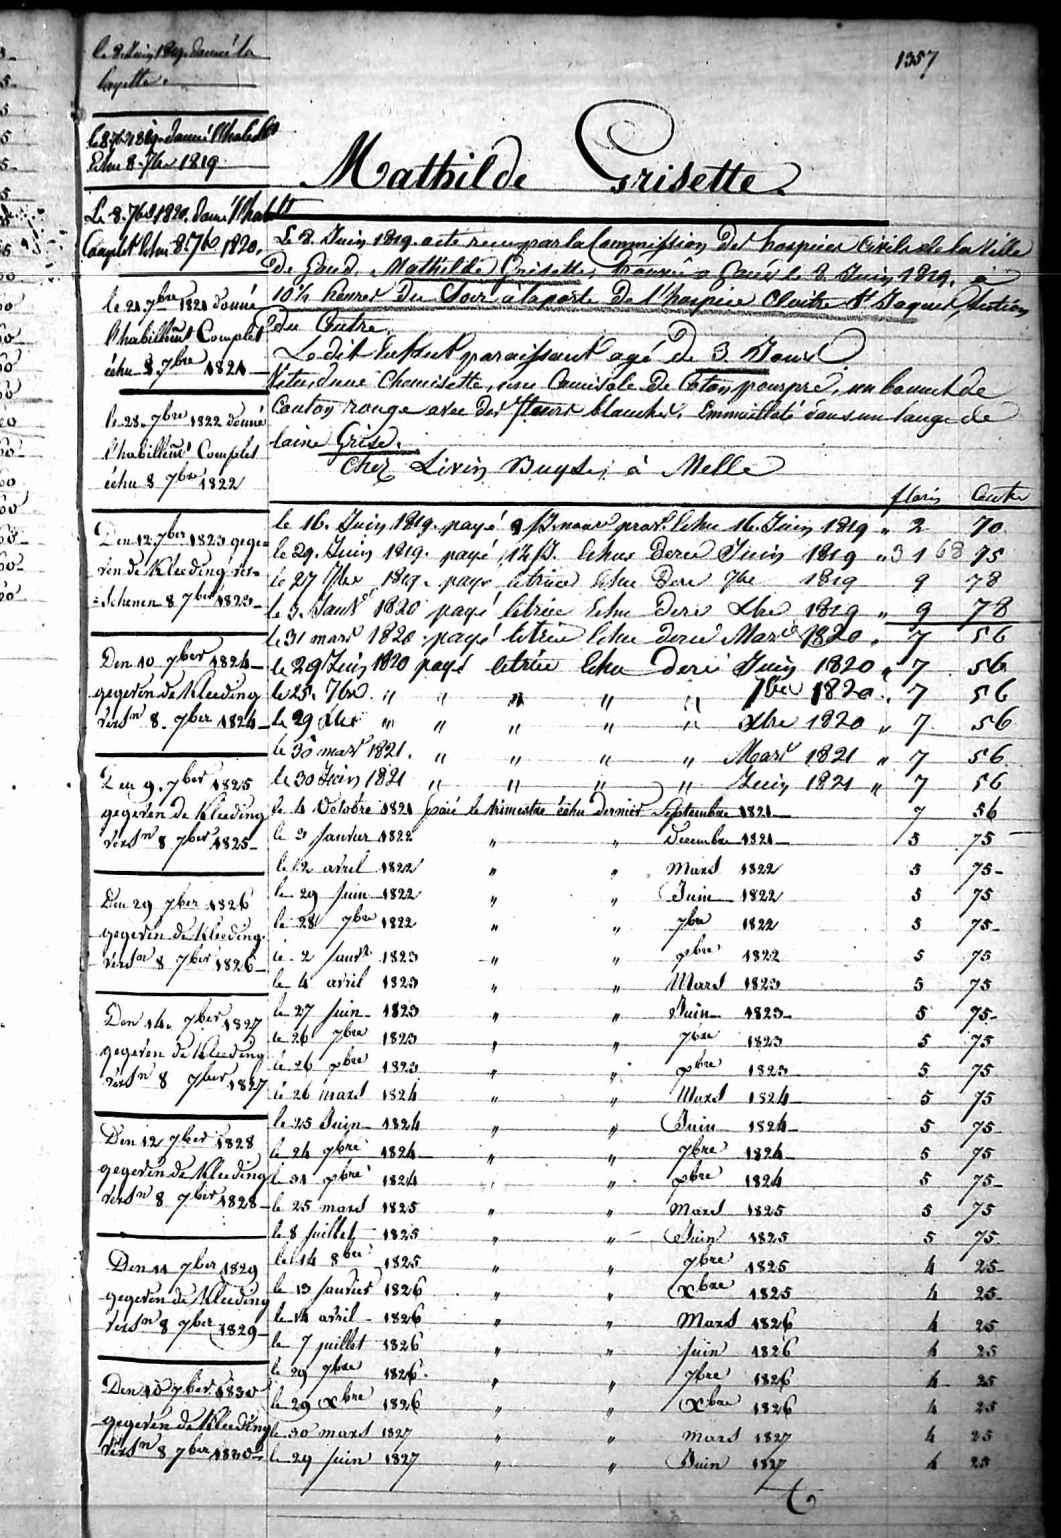 1357
Mathilde Grisette.
Le 8. Juin 1819. acte reçu par la Commission des hospices Civils de la Ville
de Gand, Mathilde Grisette, trouvée a Gand le 8 Juin 1819. à
10½ heures du Soir a la porte de l'hospice Cloitre St Jaques, Section
du Centre.
Le dit Enfant paraissant agé de 3 Jours
Vetu, d'une Chemisette, une Camisole de Coton pourpre, un bonnet de
Couton rouge avec des fleurs blanches. Emmailloté dans un lange de
laine Grise.
Chez Livin Buyse, à Melle
le 8 Juin 1819. donné la
layette.
le 8. 7bre 1819. donné l'habillt
Echu 8. 7bre 1819
Le 8. 7bre 1820. donné l'habillt
Complet Echu 8. 7bre 1820.
le 21 7bre 1821 donné
l'habillemt Complet
échu 8. 7bre 1821
le 28. 7bre 1822 donné
l'habillemt Complet
échu 8 7bre 1822
Den 12. 7ber 1823 gege=
ven de Kleeding vers=
=schenen 8 7ber 1823
Den 10 7ber 1824
gegeven de Kleeding
versn 8. 7ber 1824
Den 9. 7ber 1825
gegeven de Kleeding
versn 8 7ber 1825
Den 29 7ber 1826
gegeven de Kleeding
versn 8 7ber 1826
Den 14. 7ber 1827
gegeven de Kleeding
versn 8 7ber 1827
Den 12 7ber 1828
gegeven de Kleeding
versn 8 7ber 1828
Den 11 7ber 1829
gegeven de Kleeding
versn 8 7ber 1829
Den 10 7ber 1830
gegeven de Kleeding
versn 8 7ber 1830
floris Cents
le 16. Juin 1819. payé 9 Echu 16. Juin 1819 " 2 70
le 29. Juin 1819. payé 12 J. Echus dere Juin 1819 " 3 1 68 75
le 27 7bre 1819. payé letrim Echu dere 7bre 1819 9 78
le 3. Janvr 1820 payé letrim Echu dere Xbre 1819 " 9 78
le 31 mars 1820. payé letrim Echu dere Mars 1820 " 7 56
le 29 Juin 1820 payé letrim Echu dere Juin 1820 " 7 56
le 25. 7bre " " " " " 7bre 1820 " 7 56
le 29 Xbre " " " " " Xbre 1820 " 7 56
le 30 mars 1821. " " " " Mars 1821 " 7 56
le 30 Juin 1821 " " " " Juin 1821 " 7 56
le 4 Octobre 1821 paié le trimestre échu dernier Septembre 1821 7 56
le 3 janvier 1822 " " Decembre 1821 5 75
le 2 avril 1822 " " Mars 1822 5 75
le 29 juin 1822 " " Juin 1822 5 75
le 28 7bre 1822 " " 7bre 1822 5 75
le 2 janvr 1823 " " xbre 1822 5 75
le 4 avril 1823 " " Mars 1823 5 75
le 27 juin 1823 " " Juin 1823 5 75
le 26 7bre 1823 " " 7bre 1823 5 75
le 26 xbre 1823 " " xbre 1823 5 75
le 26 mars 1824 " " Mars 1824 5 75
le 25 Juin 1824 " " Juin 1824 5 75
le 24 7bre 1824 " " 7bre 1824 5 75
le 31 xbre 1824 " " xbre 1824 5 75
le 25 mars 1825 " " Mars 1825 5 75
le 8 juillet 1825 " " Juin 1825 5 75
le 14 8bre 1825 " " 7bre 1825 4 25
le 13 janvier 1826 " " Xbre 1825 4 25
le 14 avril 1826 " " Mars 1826 4 25
le 7 juillet 1826 " " juin 1826 4 25
le 29 7bre 1826 " " 7bre 1826 4 25
le 29 Xbre 1826 " " Xbre 1826 4 25
le 30 mars 1827 " " mars 1827 4 25
le 29 juin 1827 " " Juin 1827 4 25